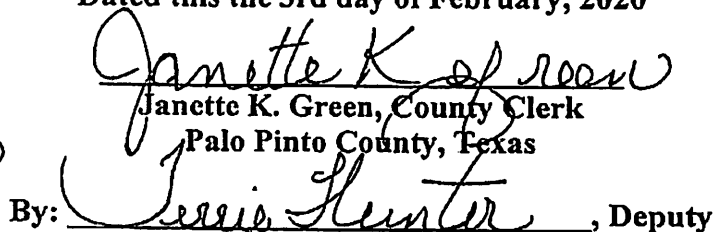 Dated this the 3rd day of February, 2020
Janette K Green
Janette K. Green, County Clerk
Palo Pinto County, Texas
By: Terrie Hunter, Deputy